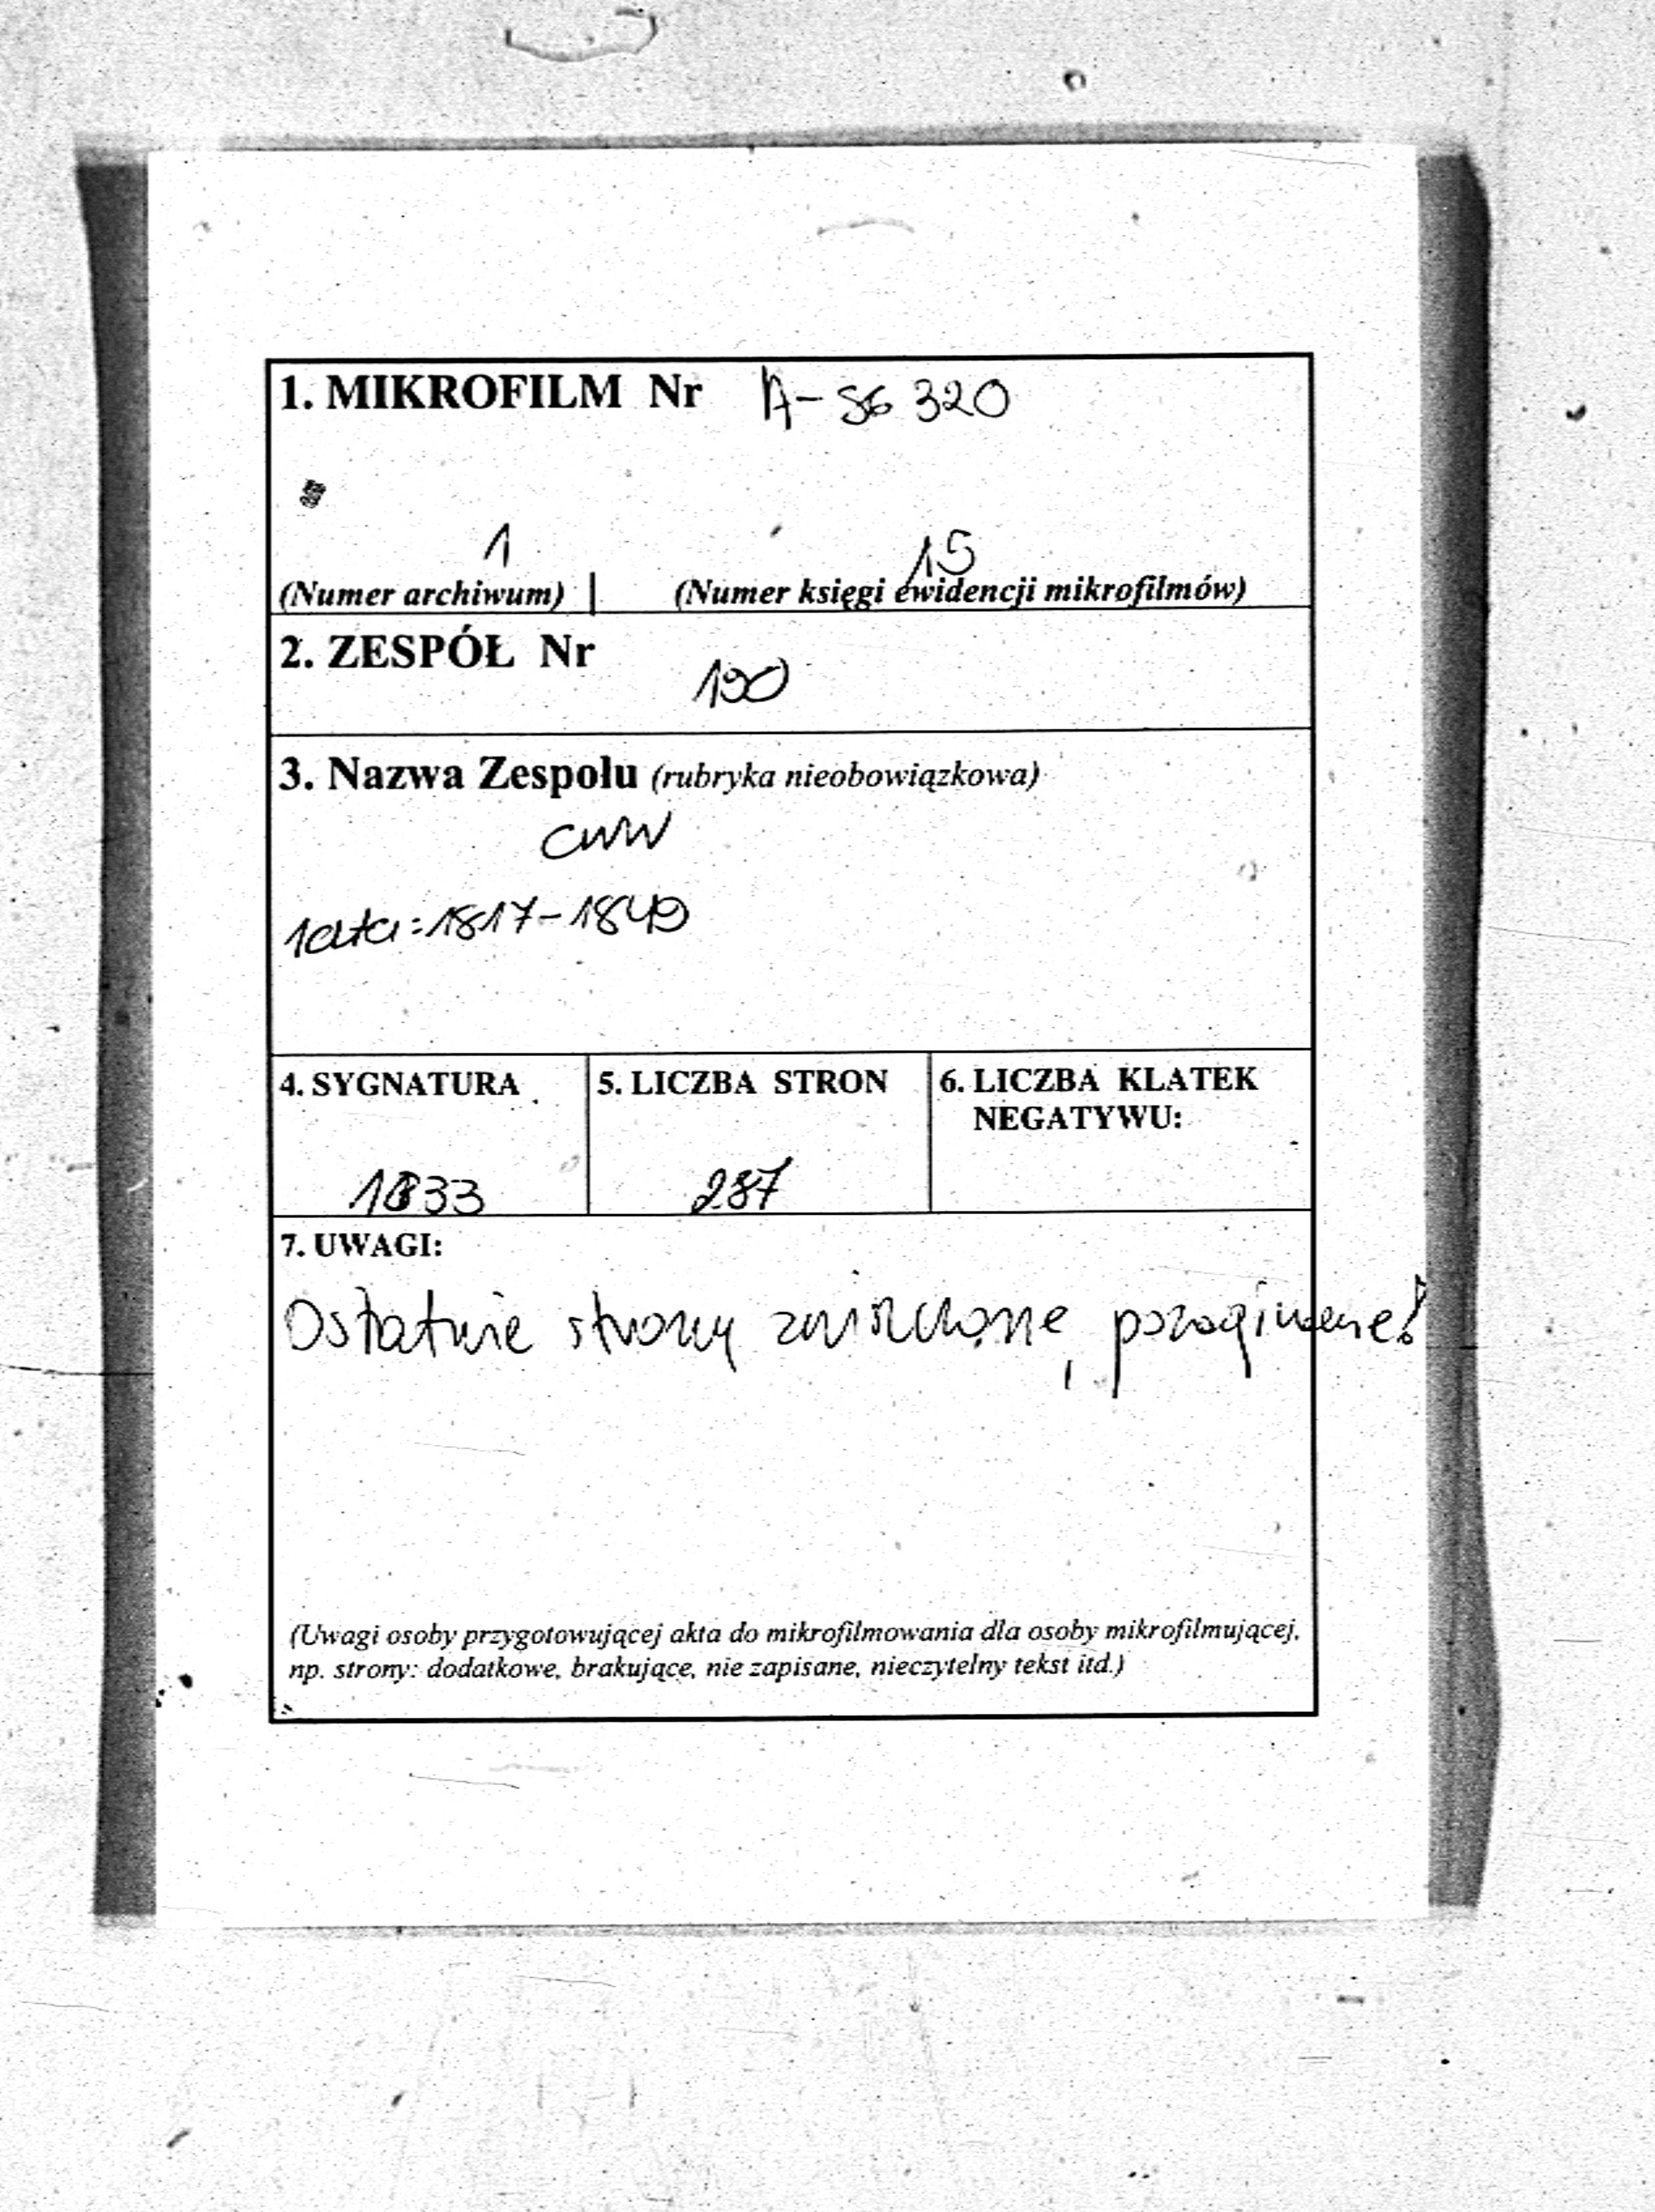 1. MIKROFILM Nr A-56 320
1 15
(Numer archiwum) | (Numer księgi ewidencji mikrofilmów)
2. ZESPÓŁ Nr
190
3. Nazwa Zespołu (rubryka nieobowiązkowa)
CWW
lata: 1817-1849
4. SYGNATURA 5. LICZBA STRON 6. LICZBA KLATEK
NEGATYWU:
1833 287
7. UWAGI:
Ostatnie strony zniszczone,
(Uwagi osoby przygotowującej akta do mikrofilmowania dla osoby mikrofilmującej,
np. strony: dodatkowe, brakujące, nie zapisane, nieczytelny tekst itd.)